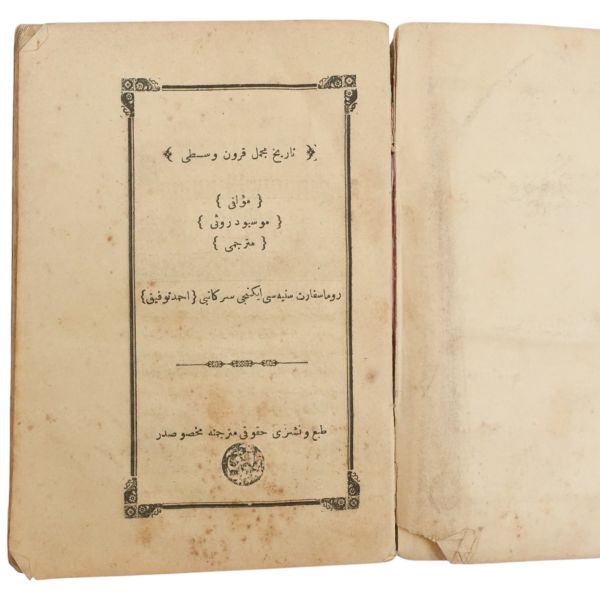 ﴿ تاریخ مجمل قرون وسطی ﴾
{ مؤلفی }
{ موسیو دروئی }
{ مترجمی }
روما سفارت سنیه سی ایکنجی سر کاتبی { احمد توفیق }
طبع و نشری حقوقی مترجمنه مخصوصدر